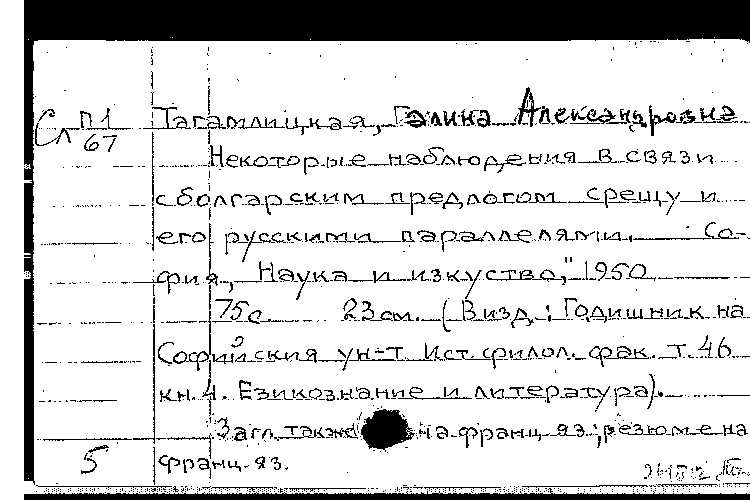 Сл П1/67
Тагамлицкая, Галина Александровна
Некоторые наблюдения в связи
с болгарским предлогом срещу и
его русскими параллелями. Со-
фия, "Наука и изкуство," 1950
75с. 23 см. (В изд.: Годишник на
Софийския ун-т Ист. филол. фак. т. 46
кн. 4. Езикознание и литература).
Загл. также на франц. яз.; резюме на
франц. яз.
5